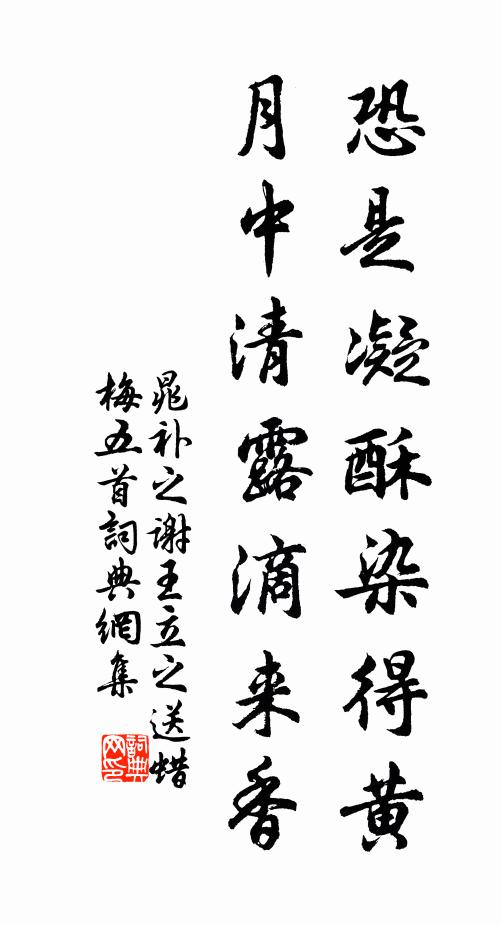 恐是凝酥染得黄
月中清露滴来香
晁补之谢王立之送蜡
梅五首詞典網集
詞典
网印